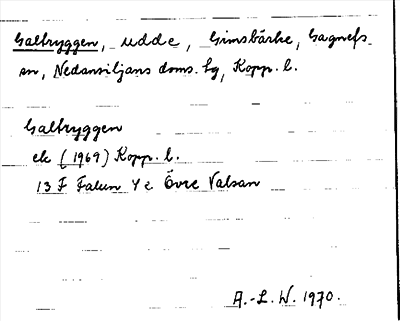 Galtryggen, udde, Gimsbärke, Gagnefs
sn, Nedansiljans doms. hg, Kopp. l.
Galtryggen
ek (1969) Kopp. l.
13 F Falun 4 c Övre Valsan
A.-L. W. 1970.